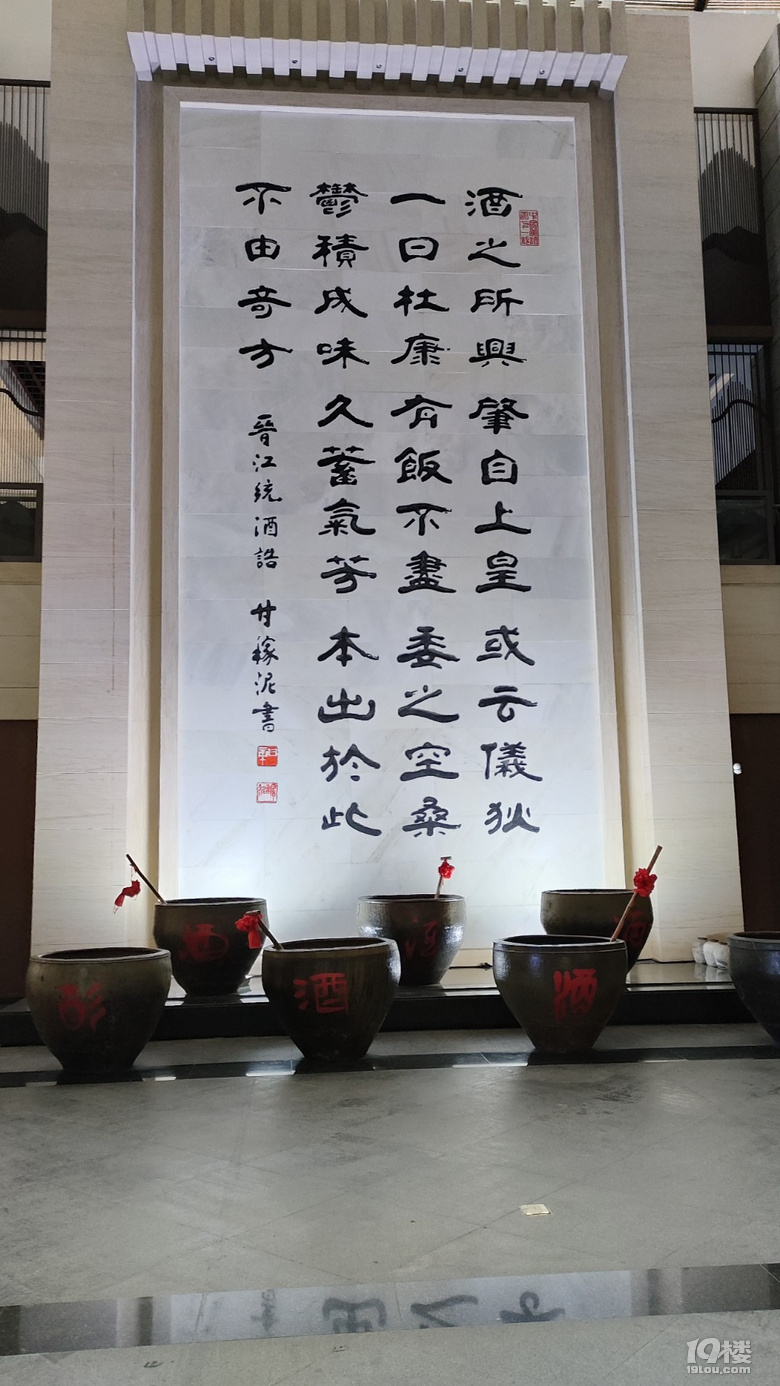 酒之所興肇自上皇或云儀狄
一曰杜康有飯不盡委之空桑
鬱積成味久蓄氣芳本出於此
不由奇方
晉江統酒誥 甘稼泥書
酒
酒
酒
酒
酒
19楼
19lou.com